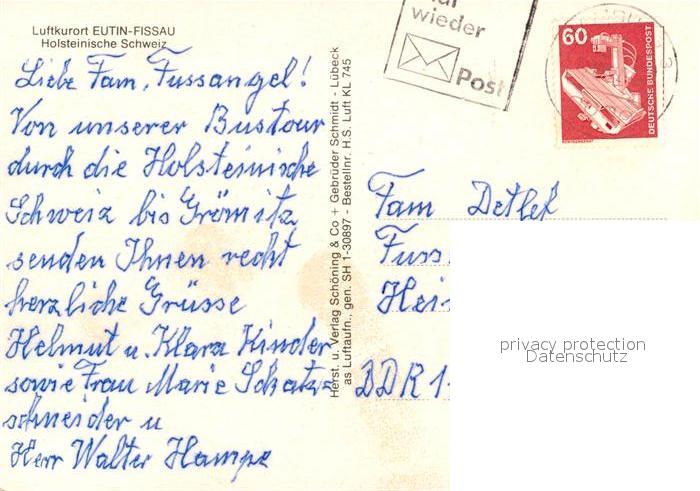 Luftkurort EUTIN-FISSAU
Holsteinische Schweiz
Liebe Fam. Fussangel!
Von unserer Bustour
durch die Holsteinische
Schweiz bis Grömitz
senden Ihnen recht
herzliche Grüsse
Helmut u. Klara Kinder
sowie Frau Marie Schatz=
schneider u
Herr Walter Hampe
Herst. u. Verlag Schöning & Co + Gebrüder Schmidt - Lübeck
as Luftaufn., gen. SH 1-30897 - Bestellnr. H.S. Luft KL 745
wieder
Post
60
DEUTSCHE BUNDESPOST
Fam Detlef
Fuss
Hei
DDR 1
privacy protection
Datenschutz